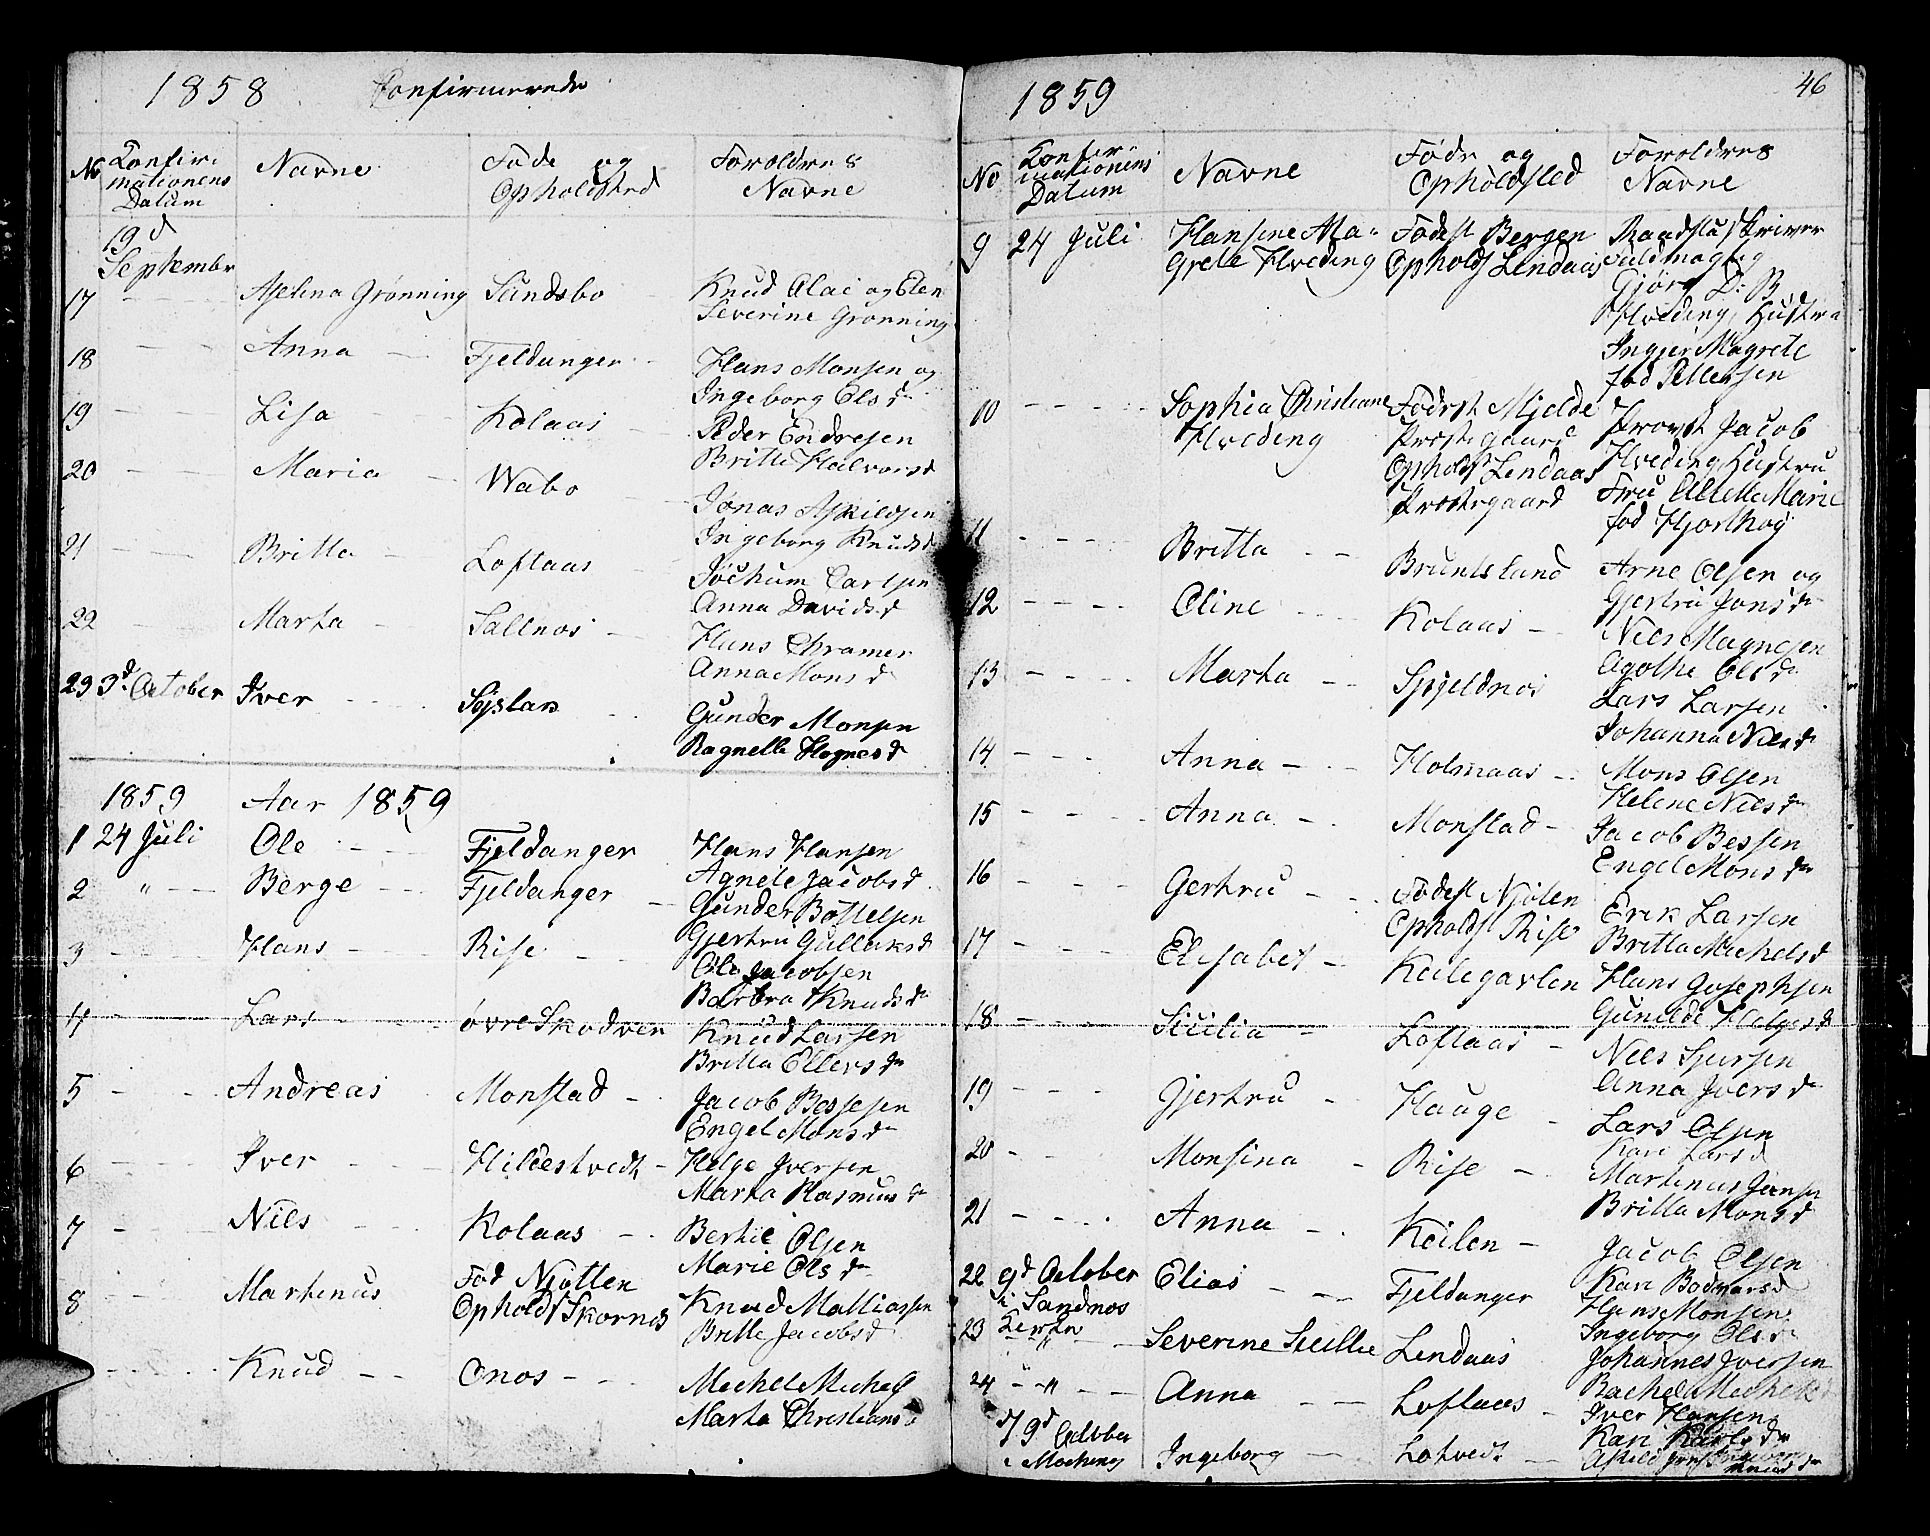 1858 Confirmerede
No Konfir:
mationens
Datum
Navne
Føde og
Opholdsted
Forældres
Navne
19 d
September
17 - - Aselina Grønning Sundsbø Knud Olai og Elen
Severine Grønning
18 - - Anna - Fjeldanger - Hans Monsen og
Ingeborg Olsd
19 - - Lisa - - Kolaas - Peder Endresen
Britte Halvorsd
20 - - Maria - Wabø - Jonas Askildsen
Ingeborg Knudsd
21 - - Britta - Loftaas - Jochum Carlsen
Anna Davidsd
22 - Marta - Sallnos - Hans Chramer
Anna Monsd
23 3d October Iver - - Gunder Monsen
Ragnelle Hognesd
1859 Aar 1859
1 24 Juli Ole - - Fjeldanger Hans Hansen
Agnete Jacobsd
2 " - - Berge - - Fjeldanger - Gunder
Gjertru Gullaksd
3 - - Hans - - Rise - - Ole Jacobsen
Barbra Knudsd
4 - - Lars - - øvre Skodven Knud Larsen
Britta Ellersd
5 - - Andreas Monstad - Jacob Bessesen
Engel Monsd
6 - - Iver - - Hildestvedt - Helge Iversen
Marta Rasmusd
7 - Nils - - Kolaas - Bertil Olsen
Marie Olsd
8 - - Martinus Fød Njøtten
Opholds Skornes Knud Mathiassen
Britte Jacobsd
- - Knud - - Onos - - Michel Michels
Marta Christiansd
1859 46
No Konfir
mationens
Datum
Navne
Føde og
Opholdsted
Forældres
Navne
9 24 Juli Hansine Ma=
grete Hveding
Fødest Bergen
Opholds Lindaas
Raadstuskriver
Fuldmægtig
Gjørg D: B
Hveding, Hustru
Ingjer Magrete
fød Pettersen
10 - - - Sophia Christiane
Hveding
Fødest Mjelde
Prestegaard
Opholds Lindaas
Prestegaard
Provst Jacob
Hveding, Hustru
Fru Alette Marie
fød Hjorthøg
11 - - - Britta - - Bruntsland Arne Olsen og
Gjertru Jonsd
12 - - - Oline - - Kolaas - Nils Magnesen
Agothe Olsd
13 - - - Marta - - Spjeldnos Lars Larsen
Johanna Nilsd
14 - - - Anna - - Holmaas - Mons Olsen
Helene Nilsd
15 - - - Anna - - Monstad - Jacob Bessen
Engel Monsd
16 - - - Gertru - - Fødest Njølen
Opholds Rise Erik Larsen
Britta Michelsd
17 - - - Elisabet - Keilegavlen Hans Josephsen
Gunilde Helgesd
18 - - - Sicilia - Loftaas - Nils Sjursen
Anna Iversd
19 - - - Gjertru - Hauge - Lars Olsen
Kari Larsd
20 - - Monsina - Rise - Martinus Jansen
Britta Monsd
21 - - - Anna - - Keilen - Jacob Olsen
Kari
22 October
i Sandnos
Kerken
Elias - - Fjeldanger Hans Monsen
Ingeborg Olsd
23 " - Severine Sicillie Lindaas Johannes Iversen
Rachel Michelsd
24 - " - - Anna - - Loftaas - Iver Hansen
Kari
9d October
i Ingeborg - Lotvedt -